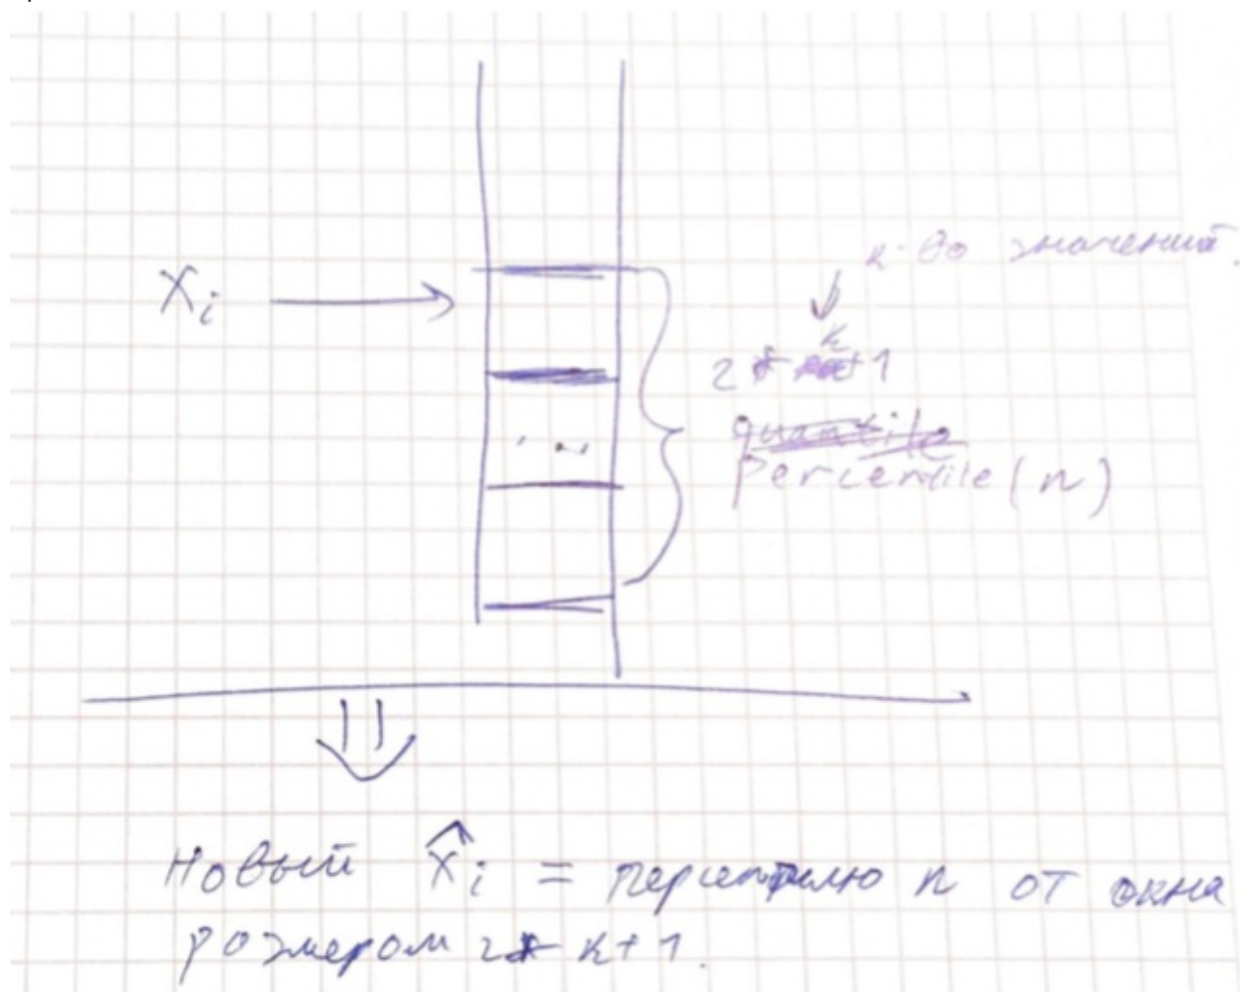 к-во значений.
Xᵢ
2 * k + 1
quantile
percentile(n)
Новый X̂ᵢ = перцентилю n от окна
размером 2 * k + 1.